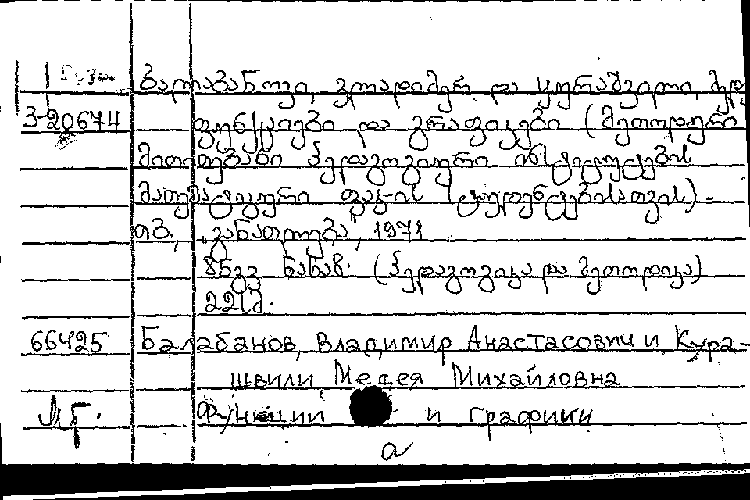 ბალაბანოვი, ვლადიმერ და ყურაშვილი, მედ
3-20674 ფუნქციები და გრაფიკები (მეთოდური
მითითებანი პედაგოგიური ინსტიტუტების
მათემატიკური ფაკ-ის სტუდენტებისათვის).-
თბ., "განათლება", 1971
ნახაზ. (პედაგოგიკა და მეთოდიკა)
66425 Балабанов, Владимир Анастасович и Кура-
швили, Медея Михайловна
Функции и графики